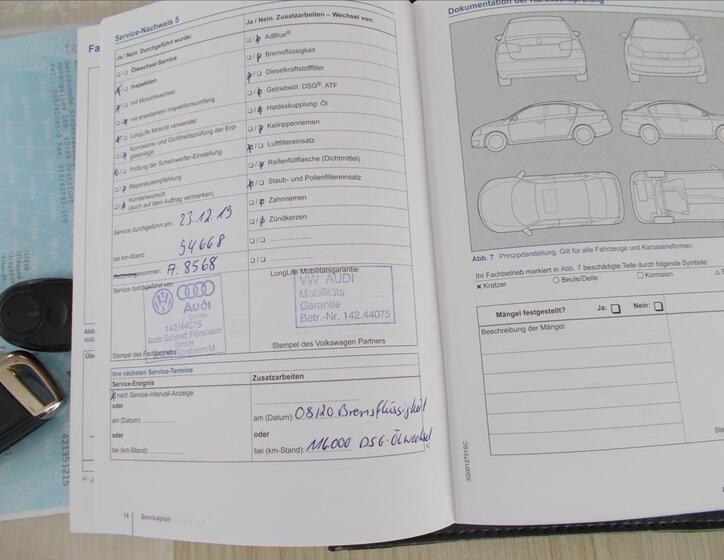 Service-Nachweis 5
Ja / Nein. Durchgeführt wurde:
Ölwechsel-Service
Inspektion
mit Motorölwechsel
mit erweitertem Inspektionsumfang
LongLife Motoröl verwendet
Korrosions- und Dichtheitsprüfung der Erdgasanlage
Prüfung der Scheinwerfer-Einstellung
Reparaturempfehlung
Kundenwunsch
(auch auf dem Auftrag vermerken)
Service durchgeführt am: 23.12.19
bei km-Stand: 94668
nummer: A: 8568
Service durchgeführt von:
Audi
Service
142/44075
Auto Schmitt Flörsheim
GmbH
Flörsheim/M.
Stempel des Fachbetriebs
Ja / Nein. Zusatzarbeiten – Wechsel von:
AdBlue®
Bremsflüssigkeit
Dieselkraftstofffilter
Getriebeöl: DSG®, ATF
Haldexkupplung: Öl
Keilrippenriemen
Luftfiltereinsatz
Reifenfüllflasche (Dichtmittel)
Staub- und Pollenfiltereinsatz
Zahnriemen
Zündkerzen
LongLife Mobilitätsgarantie:
VW AUDI
Mobilitäts
Garantie
Betr.-Nr. 142.44075
Stempel des Volkswagen Partners
Ihre nächsten Service-Termine
Service-Ereignis
nach Service-Intervall-Anzeige
oder
am (Datum):
oder
bei (km-Stand):
Zusatzarbeiten
am (Datum): 08/20 Bremsflüssigkeit
oder
bei (km-Stand): 116000 DSG-Ölwechsel
14 Serviceplan
Dokumentation der Karosserieprüfung
Abb. 7 Prinzipdarstellung. Gilt für alle Fahrzeuge und Karosserieformen.
Ihr Fachbetrieb markiert in Abb. 7 beschädigte Teile durch folgende Symbole:
× Kratzer ○ Beule/Delle □ Korrosion
Mängel festgestellt? Ja: Nein:
Beschreibung der Mängel:
3G0012701SC
421351215